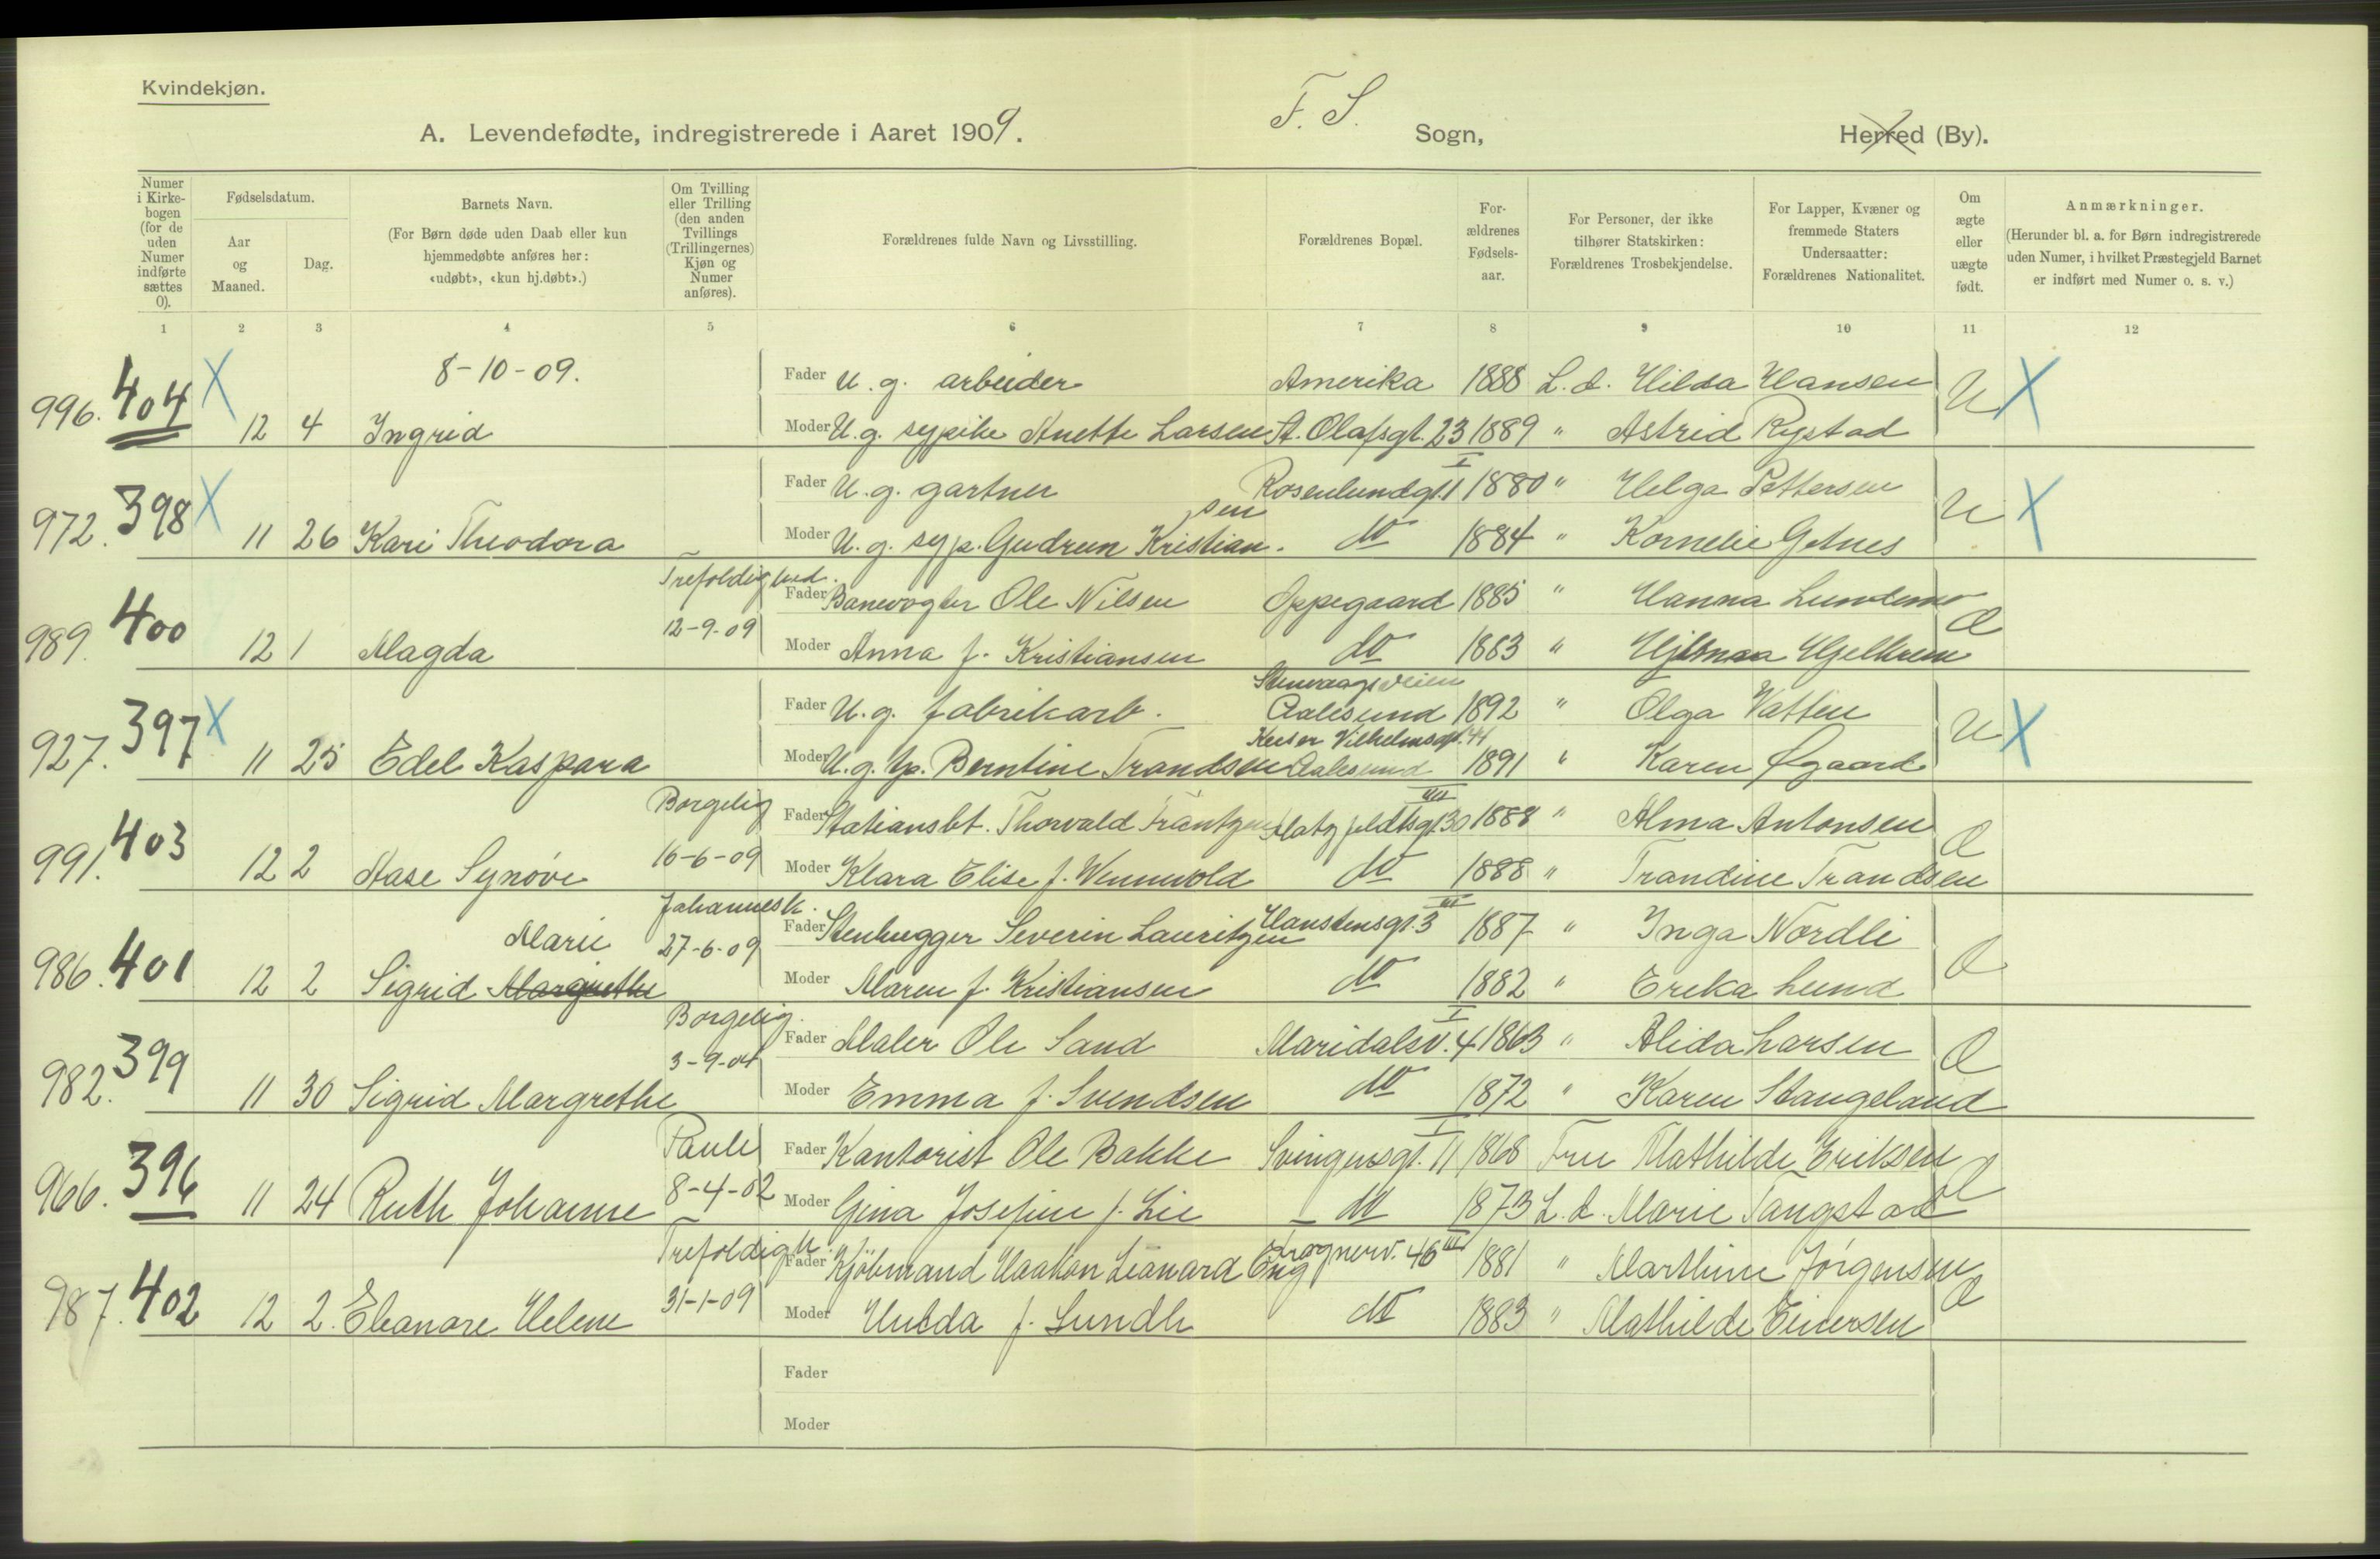 Kvindekjøn.
A. Levendefødte, indregistrerede i Aaret 1909. F. S. Sogn, Herred (By).
Numer i Kirkebogen (for de uden Numer indførte sættes 0).
Fødselsdatum.
Aar og Maaned.
Dag.
Barnets Navn.
(For Børn døde uden Daab eller kun hjemmedøbte anføres her: «udøbt», «kun hj.døbt».)
Om Tvilling eller Trilling (den anden Tvillings (Trillingernes) Kjøn og Numer anføres).
Forældrenes fulde Navn og Livsstilling.
Forældrenes Bopæl.
Forældrenes Fødselsaar.
For Personer, der ikke tilhører Statskirken: Forældrenes Trosbekjendelse.
For Lapper, Kvæner og fremmede Staters Undersaatter: Forældrenes Nationalitet.
Om ægte eller uægte født.
Anmærkninger.
(Herunder bl. a. for Børn indregistrerede uden Numer, i hvilket Præstegjeld Barnet er indført med Numer o. s. v.)
1 2 3 4 5 6 7 8 9 10 11 12
8-10-09. Fader U. g. arbeider Amerika 1888 L. d. Hilda Hansen
996. 404 X 12 4 Ingrid Moder U. g. sypike Anette Larsen St. Olafsgt. 23 1889 " Astrid Rystad U X
Fader U. g. gartner Rosenlundgt. 1 I 1880 " Helga Pettersen
972. 398 X 11 26 Kari Theodora Moder U. g. syp. Gudrun Kristiansen do 1884 " Kornelie Getnes U X
Trefoldighed. Fader Banevogter Ole Nilsen Oppegaard 1885 " Hanna Lundemo
989. 400 12 1 Magda 12-9-09 Moder Anna f. Kristiansen do 1883 " Hjelkrem Æ
Fader U. g. fabrikarb. Aalesund 1892 " Olga Vatten
927. 397 X 11 25 Edel Kaspara Moder U. g. tp. Berntine Trandsen Keiser Vilhelmsgt. 41 Aalesund 1891 " Karen Øgaard U X
Borgelig Fader Stationsbt. Thorvald Frantzen Platz feldtsgt. 30 III 1888 " Alma Antonsen
991. 403 12 2 Aase Synøve 16-6-09 Moder Klara Elise f. Wennevold do 1888 " Trandine Trandsen Æ
Johannesk. Fader Stenhugger Severin Lauritzen Hanstensgt. 3 III 1887 " Inga Nordli
986. 401 12 2 Sigrid Margrethe Marie 27-6-09 Moder Maren f. Kristiansen do 1882 " Erika Lund Æ
Borgelig. Fader Maler Ole Sand Maridalsv. 4 I 1863 " Alida Larsen
982. 399 11 30 Sigrid Margrethe 3-9-04 Moder Emma f. Svendsen do 1872 " Karen Stangeland Æ
Paule Fader Kontorist Ole Bakke Svingensgt. 11 I 1868 Fru Mathilde Eriksen
966. 396 11 24 Ruth Johanne 8-4-02 Moder Gina Josefine f. Lie do 1873 L. d. Marie Tangstad Æ
Trefoldigh. Fader Kjøbmand Haakon Leonard Eng Frognerv. 46 III 1881 " Marthine Jørgensen
987. 402 12 2. Eleanore Helene 31-1-09 Moder Hulda f. Lundh do 1883 " Mathilde Einersen Æ
Fader
Moder